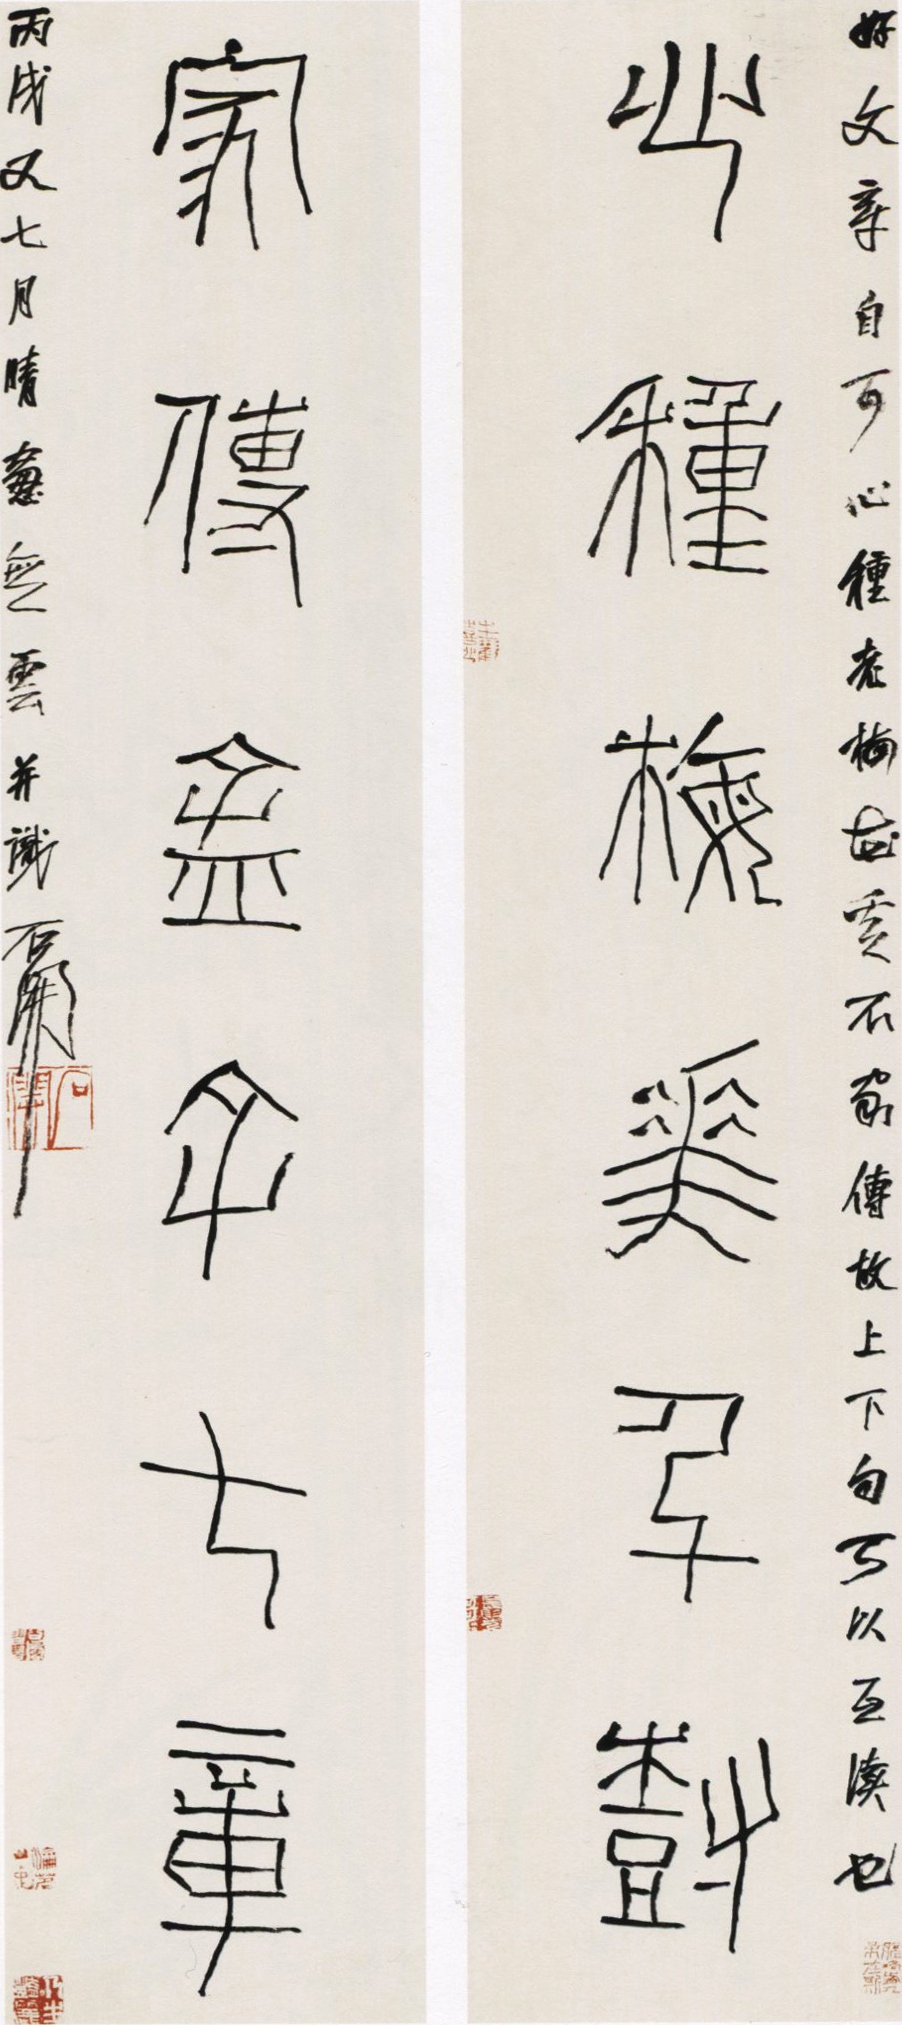 好文章自可心種老梅花豈不家傳故上下句可以互讀也
心種梅華千尌
家傳 七章
丙戌又七月晴窻無雲并識石開